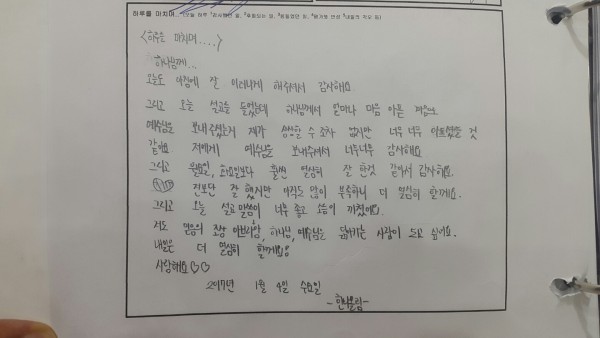 하루를 마치며... (오늘 하루 ¹감사했던 일, ²후회되는 일, ³힘들었던 일, ⁴평가와 반성 ⁵내일의 각오 등)
<하루를 마치며....>
하나님께...
오늘도 아침에 잘 일어나게 해주셔서 감사해요
그리고 오늘 설교를 들었는데 하나님께서 얼마나 마음 아픈 마음으로
예수님을 보내주셨는지 제가 상상할 수 조차 없지만 너무 너무 아프셨을 것
같아요 저에게 예수님을 보내주셔서 너무너무 감사해요
그리고 월요일, 화요일보다 훨씬 열심히 잘 한것 같아서 감사해요.
전보단 잘 했지만 아직도 많이 부족하니 더 열심히 할께요.
그리고 오늘 설교 말씀이 너무 좋고 소름이 끼쳤어요
저도 믿음의 조상 아브라함, 하나님, 예수님을 닮아가는 사람이 되고 싶어요.
내일은 더 열심히 할께요
사랑해요♡♡
2017년 1월 4일 수요일